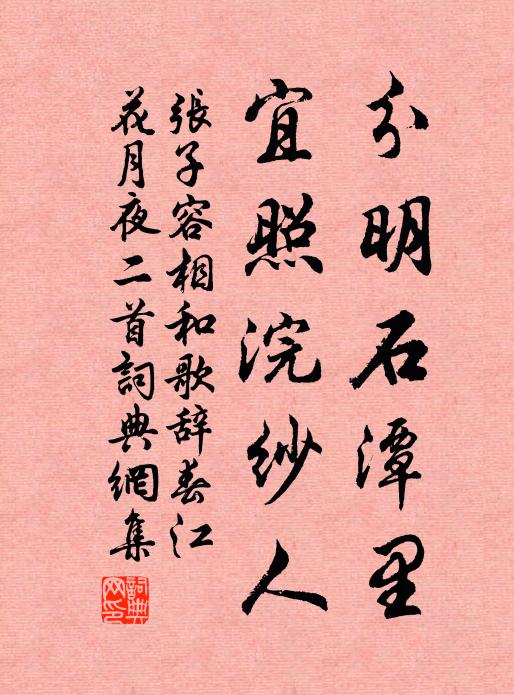 分明石潭里
宜照浣纱人
張子容相和歌辞春江
花月夜二首詞典網集
詞典网印